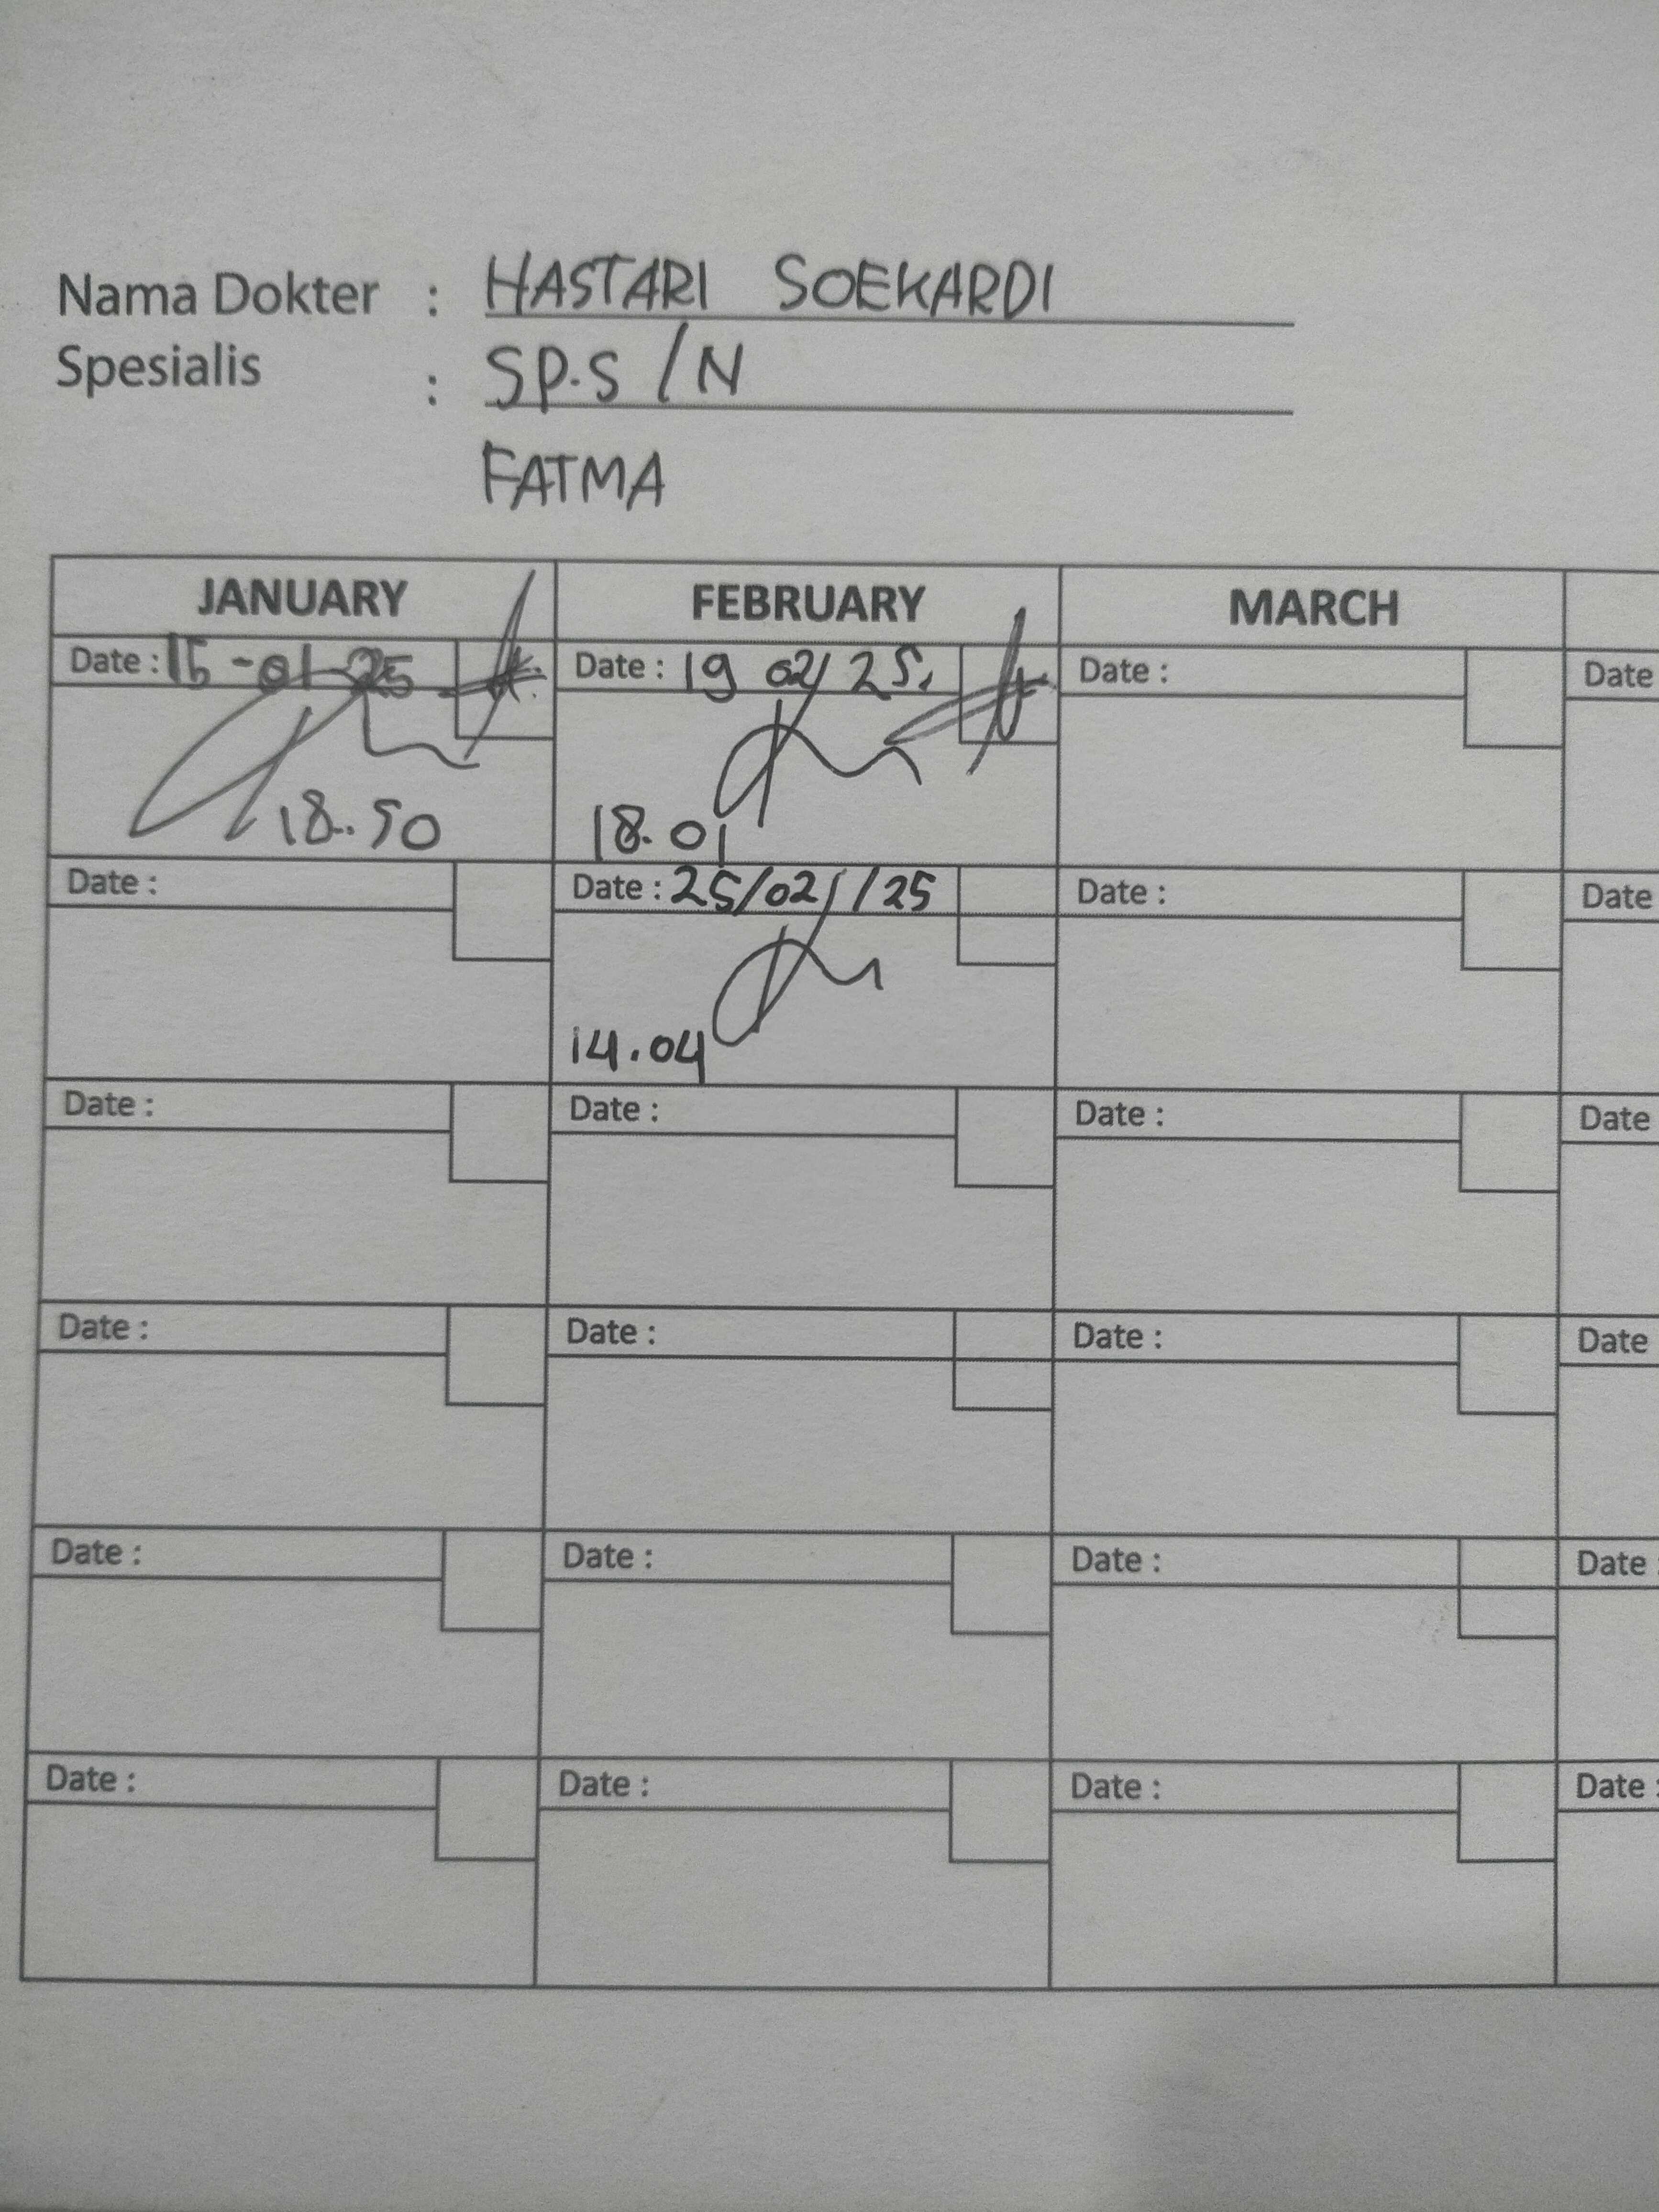 Nama Dokter : HASTARI SOEKARDI
Spesialis : SP.S / N
FATMA
JANUARY FEBRUARY MARCH
Date : -01-25 Date : 19 02/ 25. Date : Date
18.50 18.01
Date : Date : 25/02/25 Date : Date
14.04
Date : Date : Date : Date
Date : Date : Date : Date
Date : Date : Date : Date :
Date : Date : Date : Date :